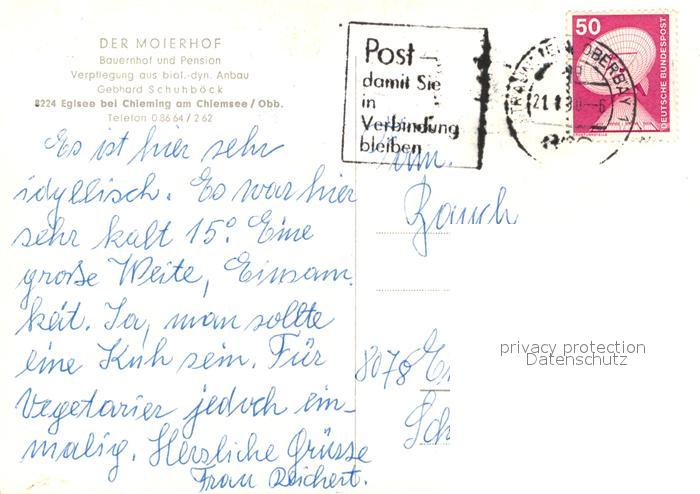 DER MOIERHOF
Bauernhof und Pension
Verpflegung aus biol.-dyn. Anbau
Gebhard Schuhböck
8224 Eglsee bei Chieming am Chiemsee / Obb.
Telefon 0 86 64 / 2 62
Es ist hier sehr
idyllisch. Es war hier
sehr kalt 15°. Eine
große Weite, Einsam
keit. Ja, man sollte
eine Kuh sein. Für
Vegetarier jedoch ein-
malig. Herzliche Grüsse
Frau Reichert.
Post
damit Sie
in
Verbindung
bleiben
50
DEUTSCHE BUNDESPOST
OBERBAY 1
Fam.
Rauch
8078 E
Sch
privacy protection
Datenschutz